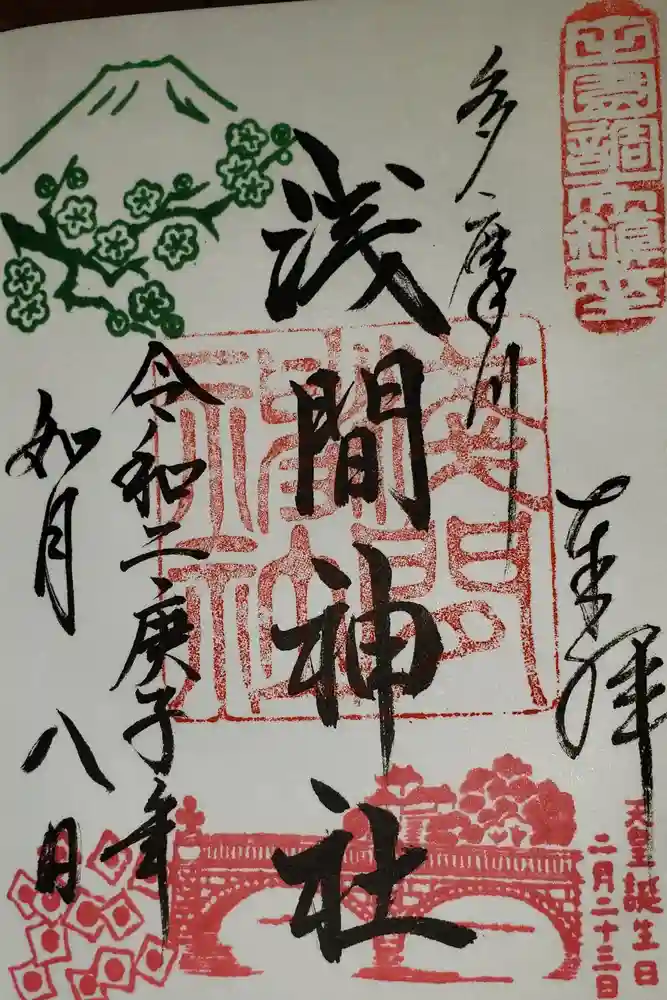 田園調布鎮座
奉拝
多摩川
浅間神社
淺間神社
令和二庚子年
如月八日
天皇誕生日
二月二十三日